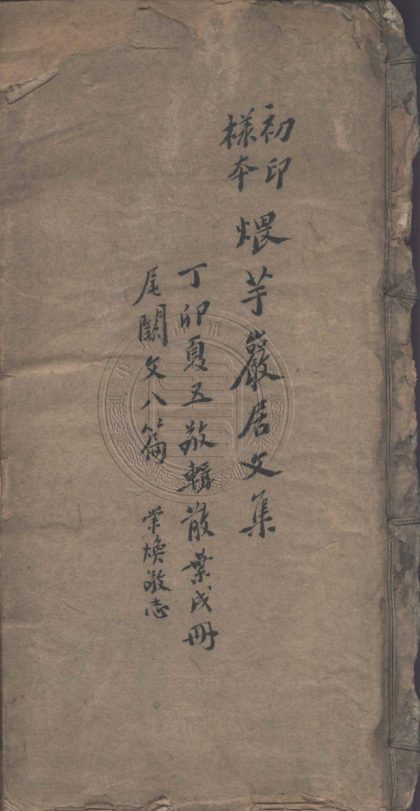 初印樣本
煨芋巖居文集
丁卯夏五敬輯散葉成冊
尾闕文八篇
崇煥敬志